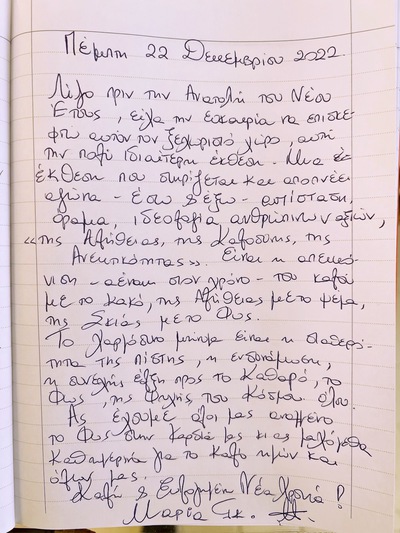 Πέμπτη 22 Δεκεμβρίου 2022.
Λίγο πριν την Ανατολή του Νέου
Έτους, είχα την ευκαιρία να επισκε-
φτώ αυτόν τον ξεχωριστό χώρο, αυτή
την πολύ ιδιαίτερη έκθεση. Μια
έκθεση που στηρίζεται και αποπνέει
αγώνα - έσω & έξω - αντίσταση,
όραμα, ιδεολογία, ανθρώπινων αξιών,
«της Αλήθειας, της Καλοσύνης, της
Ανεκτικότητας». Είναι η απεικό-
νιση - αέναη στον χρόνο - του καλού
με το κακό, της Αλήθειας με το ψέμα,
της Σκιάς με το Φως.
Το χαρμόσυνο μήνυμα είναι η σταθερό-
τητα της πίστης, η ενδυνάμωση,
η συνεχής έλξη προς το Καθαρό, το
Φως, της Ψυχής του Κόσμου όλου.
Ας έχουμε όλοι μας αναμμένο
το Φως στην Καρδιά μας κι ας παλεύουμε
καθημερινά για το καλό ημών και
όλων μας.
Καλή & Ευλογημένη Νέα Χρονιά!
Μαρία Γκ.